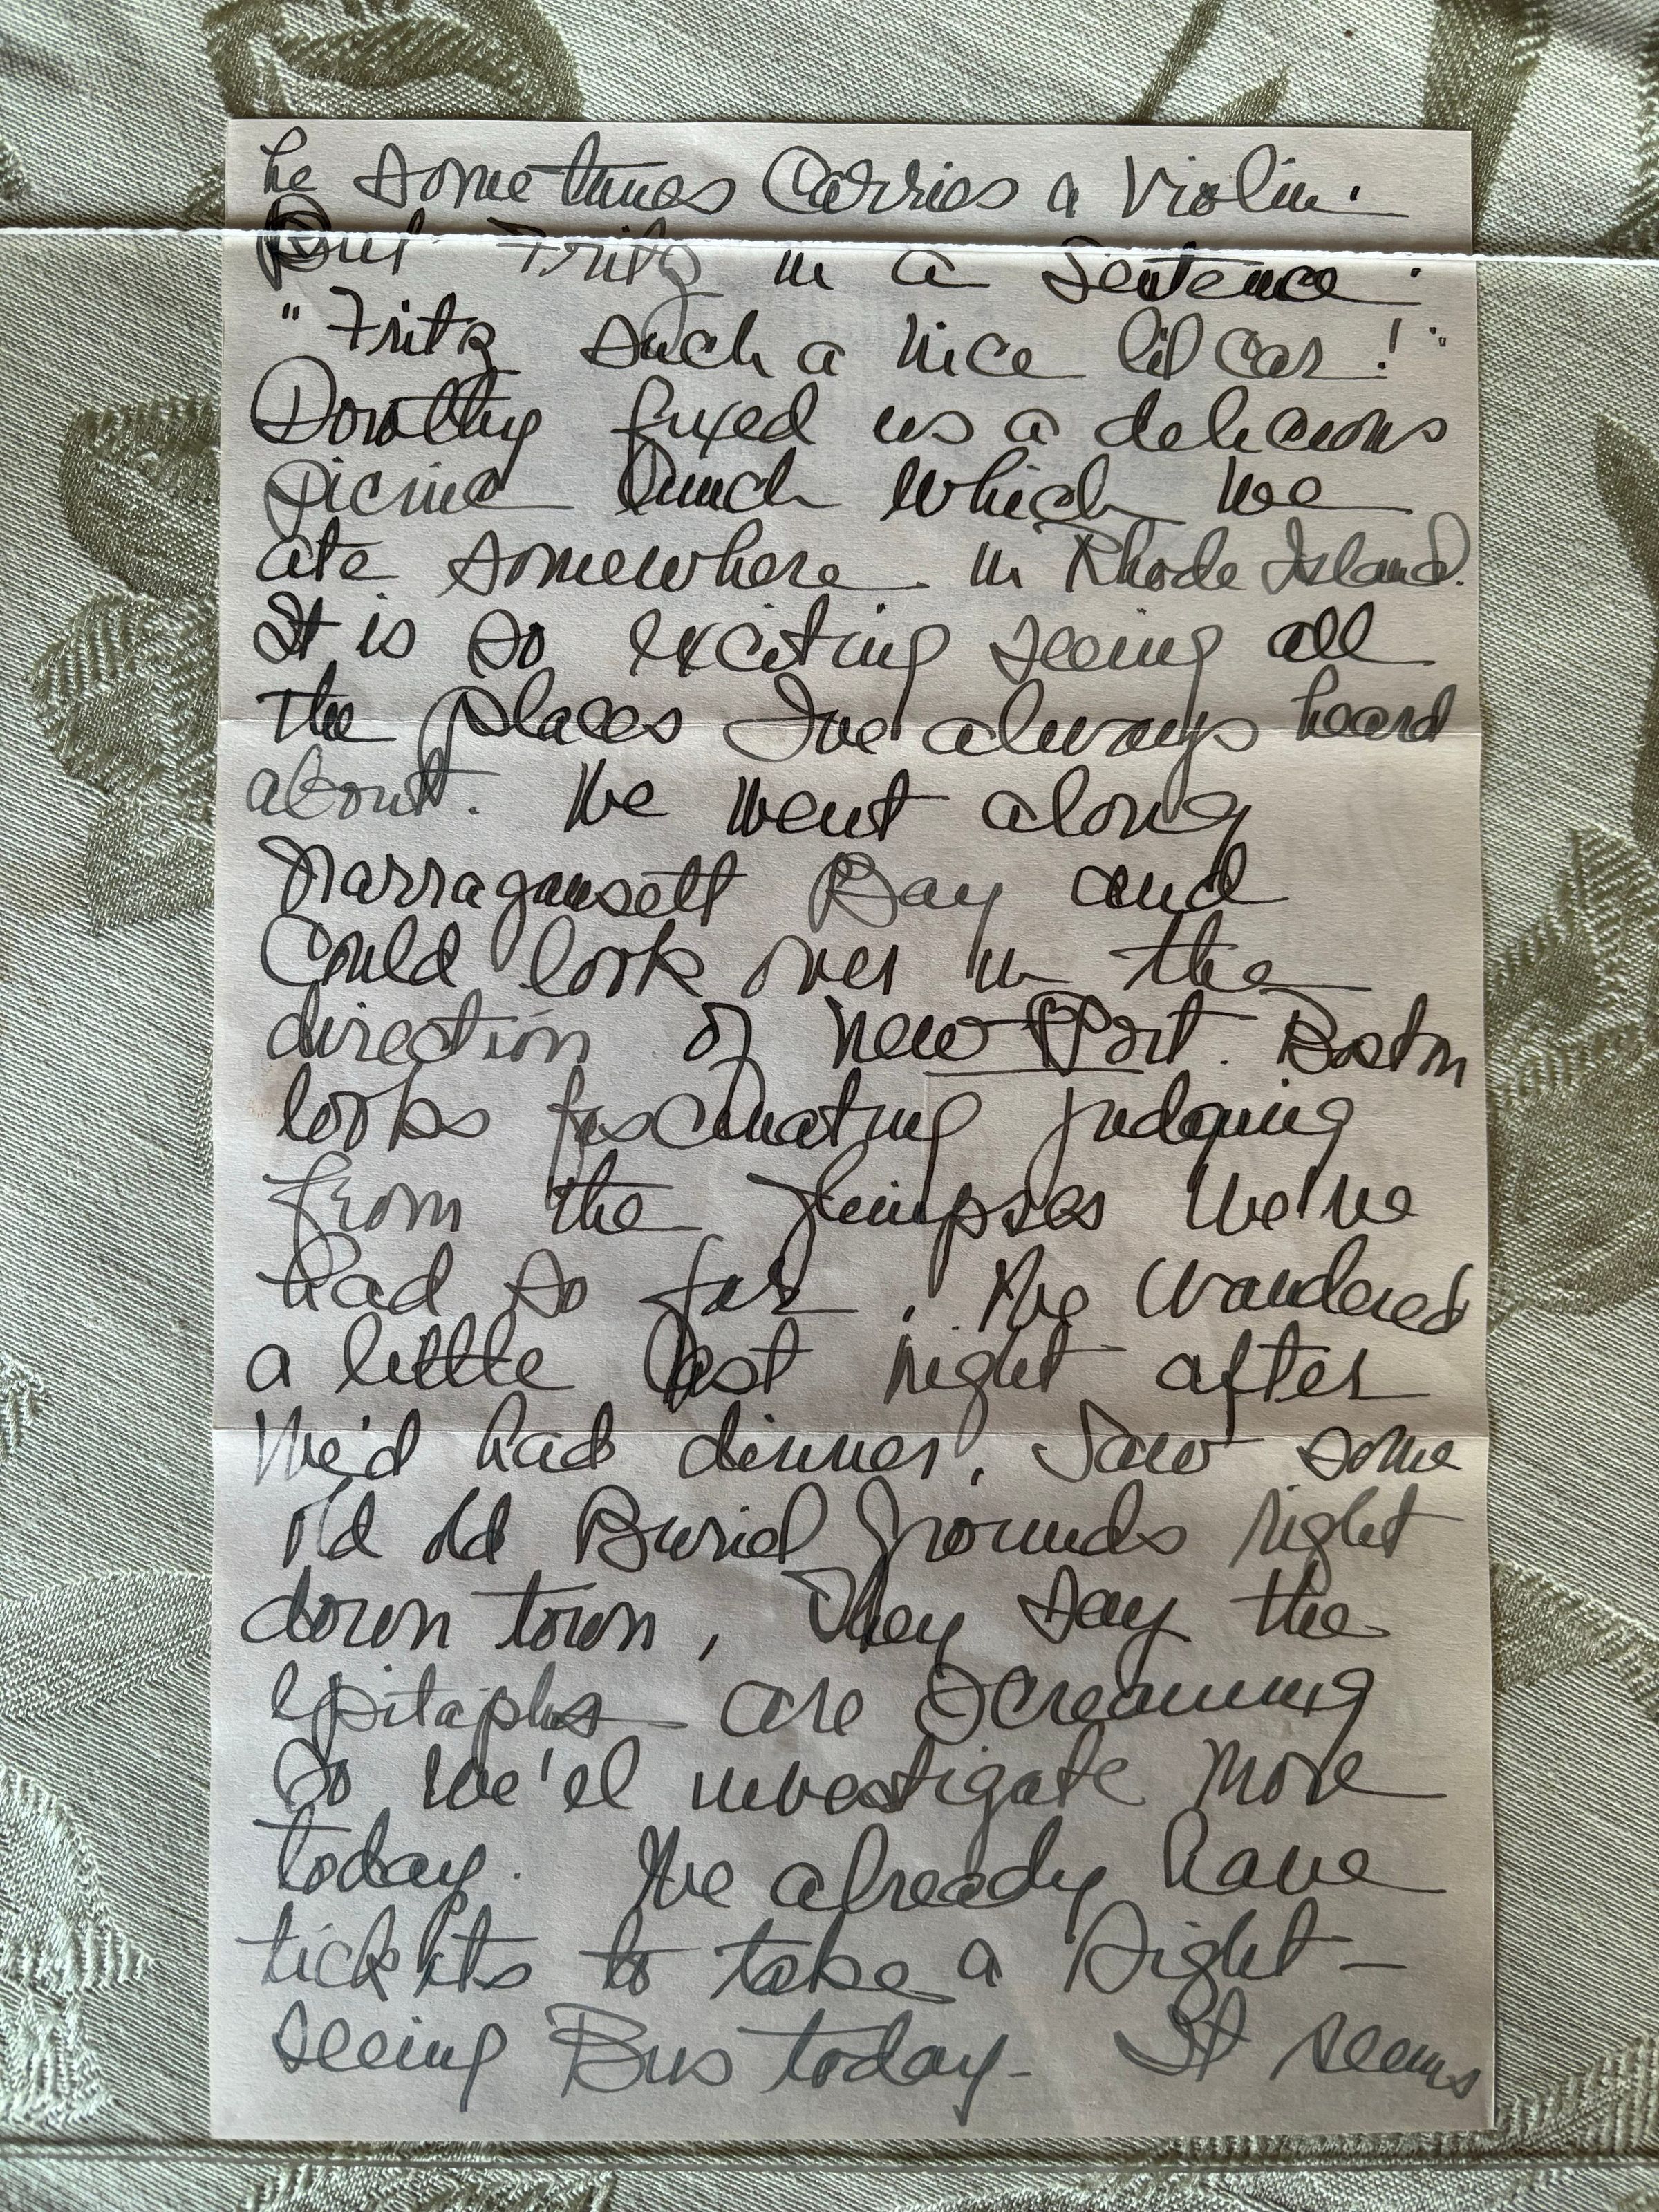 he sometimes Carries a Violin.
But Fritz in a Sentence.
"Fritz such a nice lil car!"
Dorothy fixed us a delicious
picnic lunch which we
ate somewhere in Rhode Island.
It is so exciting seeing all
the places I've always heard
about. We went along
Narragansett Bay and
Could look over in the
direction of New Port. Boston
looks fascinating judging
from the glimpses We've
had so far. We wandered
a little last night after
We'd had dinner. Saw some
old old Burial grounds right
down town, They say the
epitaphs are screaming
So We'el investigate More
today. We already have
tickets to take a Sight-
seeing Bus today- It seems